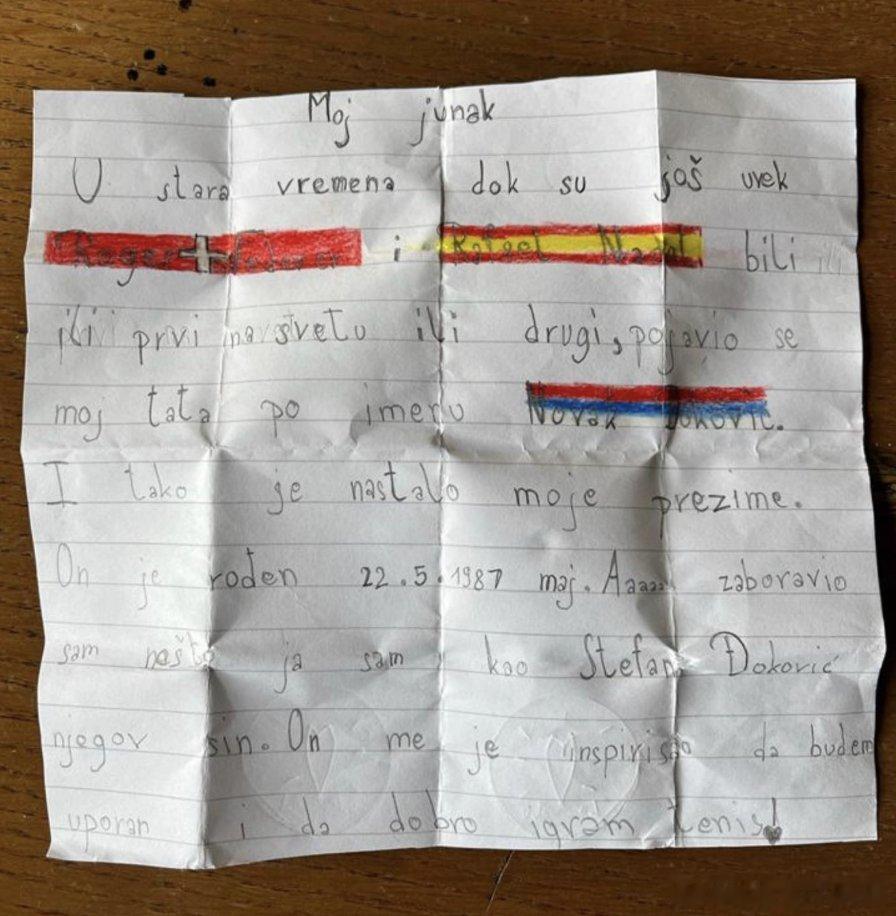 Moj junak
U stara vremena dok su još uvek
Roger Federer i Rafael Nadal bili
ili prvi na svetu ili drugi, pojavio se
moj tata po imenu Novak Doković.
I tako je nastalo moje prezime.
On je roden 22.5.1987 maj. Aaaaa zaboravio
sam nešto ja sam kao Stefan Đoković
njegov sin. On me je inspirisao da budem
uporan i da dobro igram tenis!